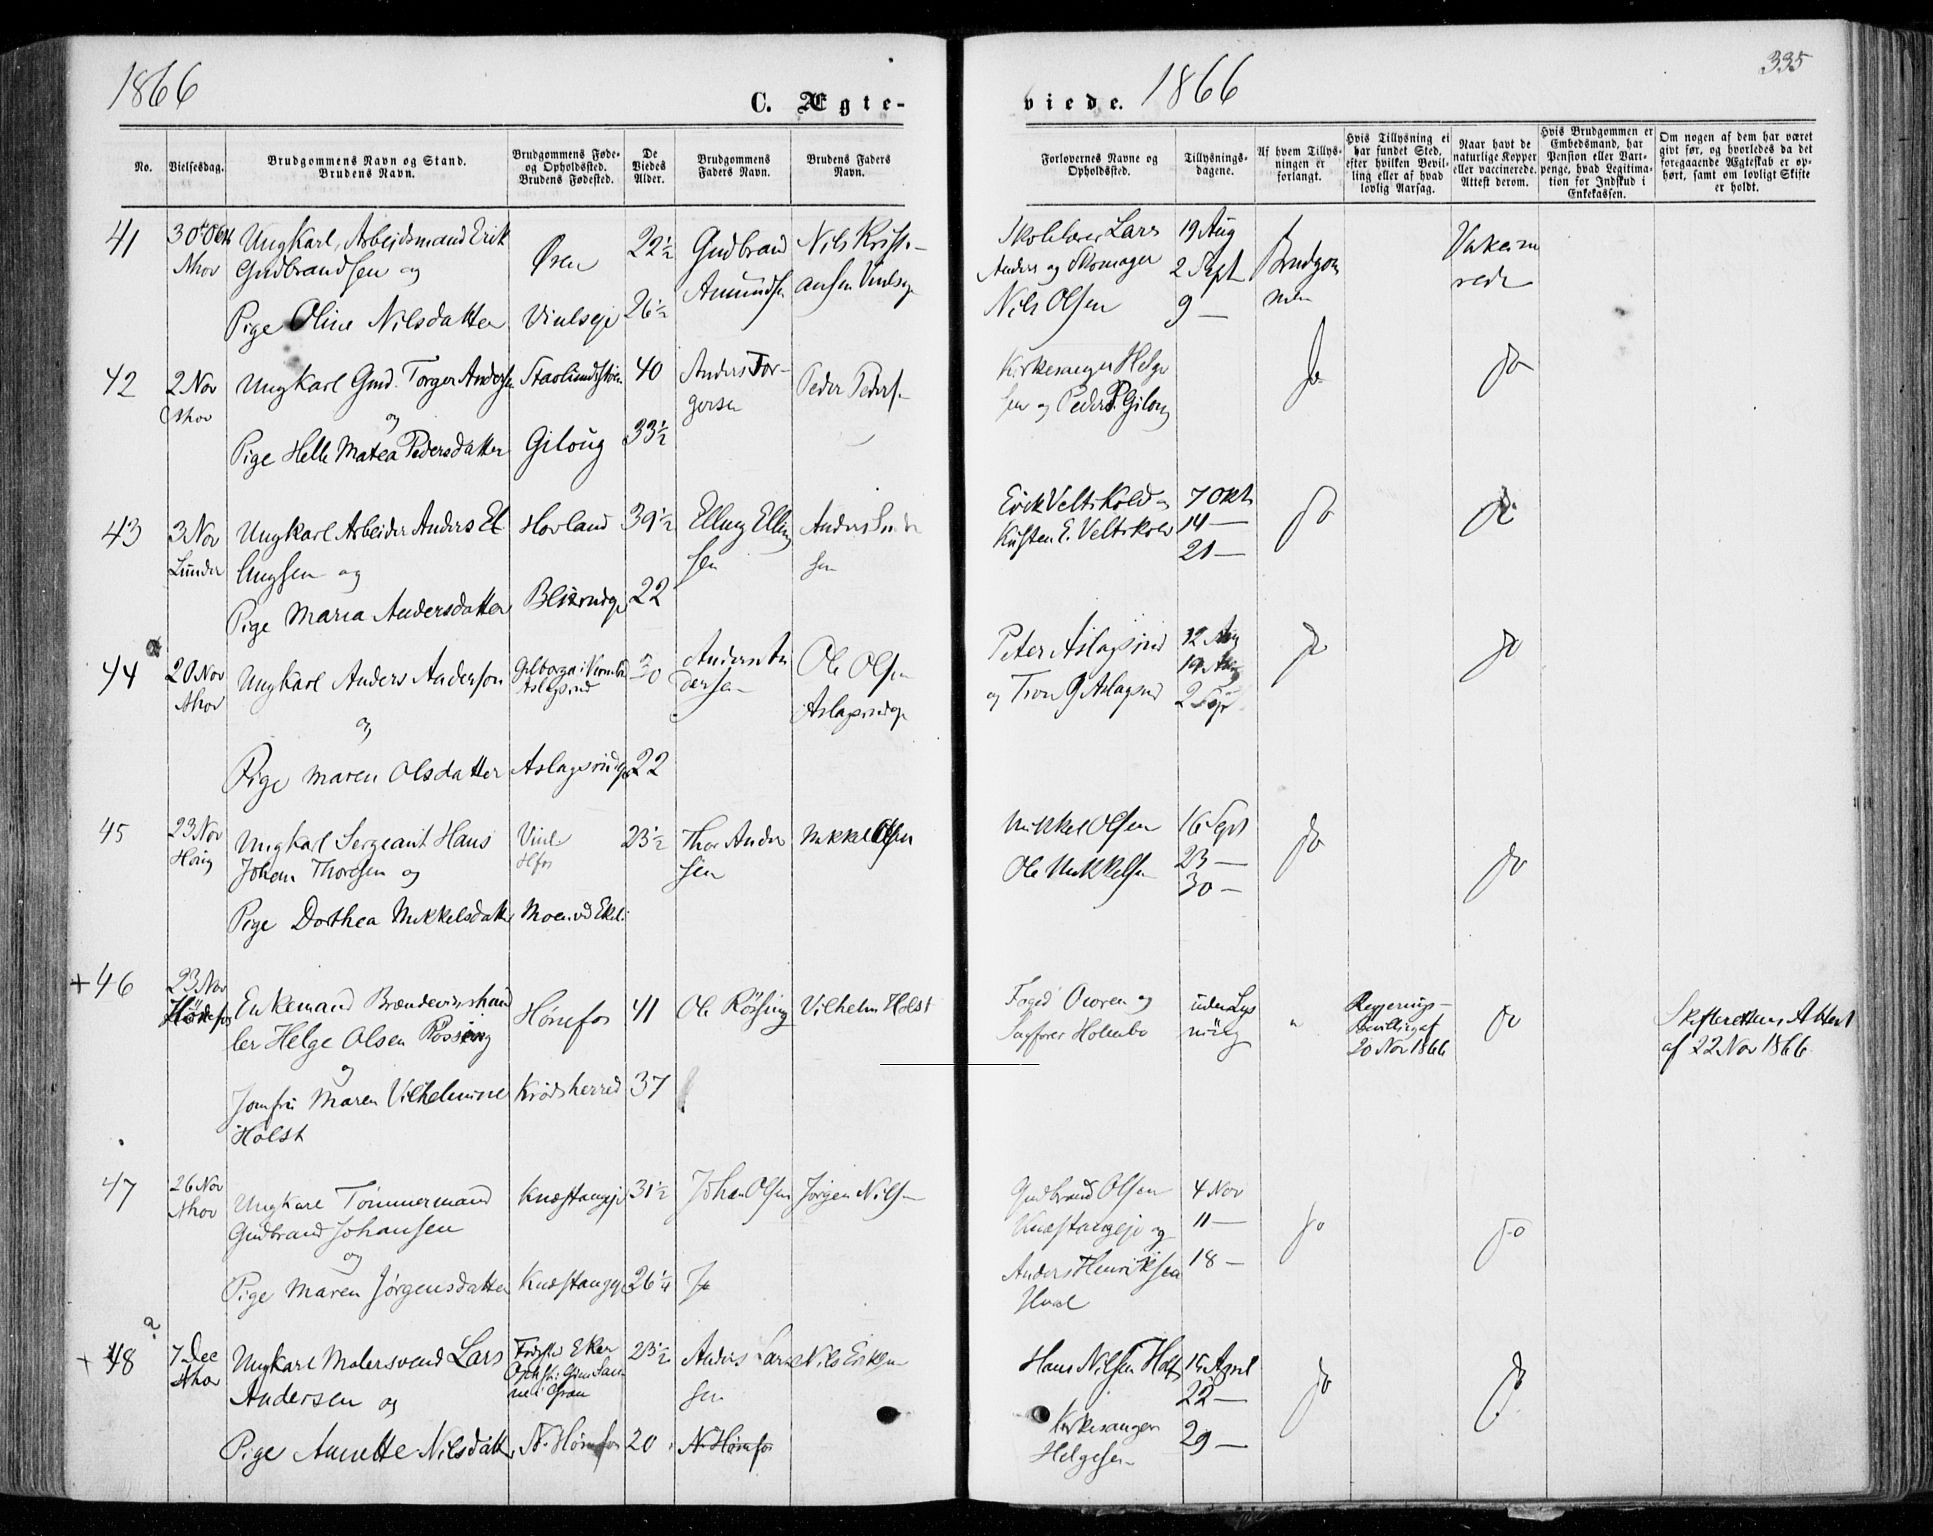 1866
C. Ægte-
viede. 1866
335
No.
Vielsesdag.
Brudgommens Navn og Stand.
Brudens Navn.
Brudgommens Føde-
og Opholdssted.
Brudens Fødested.
De
Viedes
Alder.
Brudgommens
Faders Navn.
Brudens Faders
Navn.
Forlovernes Navne og
Opholdsted.
Tillysnings-
dagene.
Af hvem Tillys-
ningen er
forlangt.
Hvis Tillysning ei
har fundet Sted,
efter hvilken Bevil-
ling eller af hvad
lovlig Aarsag.
Naar havt de
naturlige Kopper
eller vaccinerede.
Attest derom.
Hvis Brudgommen er
Embedsmand, har
Pension eller Vart-
penge, hvad Legitima-
tion for Indskud i
Enkekassen.
Om nogen af dem har været
givt før, og hvorledes da det
foregaaende Ægteskab er op-
hørt, samt om lovligt Skifte
er holdt.
41
Nhov
Ungkarl, Arbeidsmand Erik
Gudbrandsen og
Pige Oline Nilsdatter
Øren
Vielseje
22½
26½
Gudbrand
Amundsen
Nils Kristi-
ansen
Skolelærer Lars
Anders og Skomager
Nils Olsen
19 Aug
2 Sept
9 —
Brudgom
men
42
2 Nov
Nhov
Ungkarl Gmd. Torger Andersen
og
Pige Helle Matea Pedersdatter
Giloug
40
33½
Anders Tor-
gersen
Peder Peders.
Kirkesanger Helge
sen og Peder P. Giloug
Ja
Ja
43
3 Nov
Lunder
Ungkarl Arbeider Anders El
lingsen og
Pige Maria Andersdatter
Hovland
39½
22
Elling Elling
sen
Anders
sen
Erik Veltskold og
Kristen E. Veltskold
7 Okt
14 —
21 —
Ja
Ja
44
20 Nov
Nhov
Ungkarl Anders Anderson
og
Pige Maren Olsdatter
Aslagsrud
Aslagsrudeje
30
22
Anders An
dersen
Ole Olsen
Aslagsrudeje
Peter Aslagsrud
og Tron O Aslagsrud
12 Aug
19 Aug
2 Sept
Ja
Ja
45
23 Nov
Ungkarl Sergeant Hans
Johan Thoresen og
Pige Dorthea Mikkelsdatter
Hfos
Moen vd Ekeli
23½
Thor Ander
sen
Mikkel Olsen
Mikkel Olsen
Ole Mikkelsen
16 Sept
23 —
30 —
Ja
Ja
+ 46
23 Nov
Hönefos
Enkemand Brændevinshand
ler Helge Olsen Rössing
og
Jomfru Maren Vilhelmine
Holst
Hönefos
Krødsherred
41
37
Ole Rössing
Vilhelm Holst
Foged Owren og
Sagfører Holmbo
uden Lys
ning
"
Regjerings-
Bevilling af
20 Nov 1866
Ja
Skifterettens Attest
af 22 Nov 1866.
47
26 Nov
Nhov
Ungkarl Tömmermand
Gudbrand Johansen
og
Pige Maren Jørgensdatter
Knæstangeje
Knæstangeje
31½
26¼
Johan Olsen
Jørgen Nilsen
Ja
Gudbrand Olsen
Knæstangeje og
Anders Henriksen
4 Nov
11 —
18 —
Ja
Ja
+ 48
7 Dec
Nhov
Ungkarl Malersvend Lars
Andersen og
Pige Annette Nilsdatter
Eker
Gran
N. Hönefos
23½
20
Anders Lar
sen
Nils Eriksen
N. Hönefos
Hans Nilsen
Kirkesanger
Helgesen
15 April
22 —
29 —
Ja
Ja